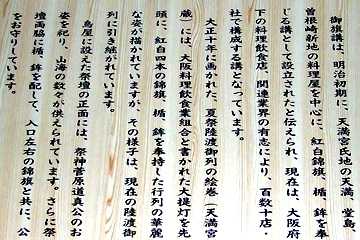 御旗講は、明治初期に、天満宮氏地の天満、堂島、
曽根崎新地の料理屋を中心に、紅白錦旗、楯、鉾を奉
じる講として設立されたと伝えられ、現在は、大阪府
下の料理飲食店、関連業界の有志により、百数十店・
社で構成する講となっています。
大正十年に画かれた、夏祭陸渡御列の絵巻（天満宮
蔵）には、大阪料理飲食業組合と書かれた大提灯を先
頭に、紅白四本の錦旗、楯、鉾を奉持した行列の華麗
な姿が描かれていますが、その様子は、現在の陸渡御
列に引き継がれています。
鳥屋に設えた祭壇の正面には、祭神菅原道真公のお
姿を祀り、山海の数々が供えられています。さらに祭
壇両脇に楯、鉾を配て、入口左右の錦旗と共に、公
をお守りしています。